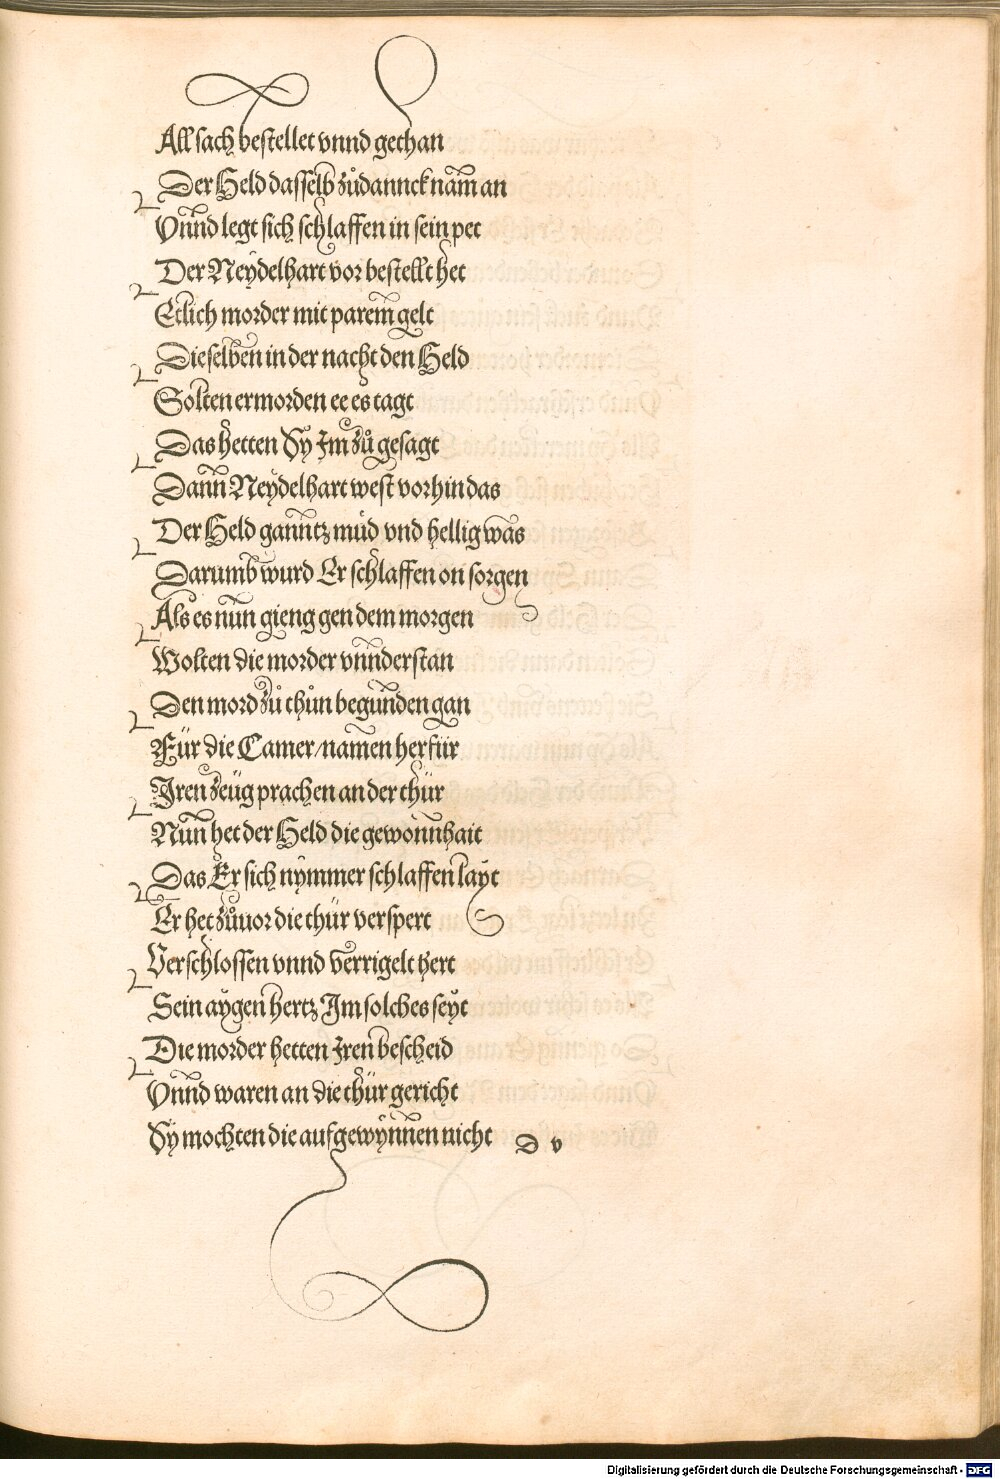 All sach bestellet vnnd gethan
Der Held dasselb zůdannck nam̃ an
Vnnd legt sich schlaffen in sein pet
Der Neydelhart vor bestellt het
Etlich morder mit parem gelt
Dieselben in der nacht den Held
Solten ermorden ee es tagt
Das hetten Sy Im zů gesagt
Dann Neydelhart west vorhin das
Der Held ganntz müd vnd hellig was
Darumb wurd Er schlaffen on sorgen
Als es nun gieng gen dem morgen
Wolten die morder vnnderstan
Den mord zů thůn begunden gan
Für die Camer/namen herfür
Iren zeüg prachen an der thür
Nun het der Held die gewonnhait
Das Er sich nymmer schlaffen layt
Er het zůuor die thür verspert
Verschlossen vnnd verrigelt hert
Sein aygen hertz Im solches seyt
Die morder hetten Iren bescheid
Vnnd waren an die thür gericht
Sy mochten die aufgewynnen nicht D v
Digitalisierung gefördert durch die Deutsche Forschungsgemeinschaft - DFG